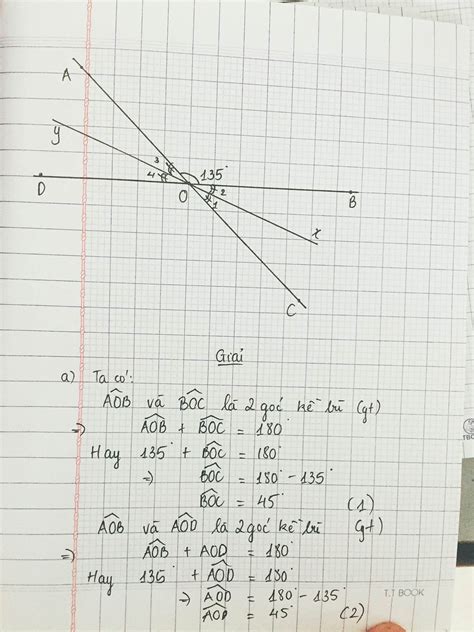 A
y
3
135°
4
2
D
O
1
B
x
C
Giải
a) Ta có:
AÔB và BÔC là 2 góc kề bù (gt)
=> AÔB + BÔC = 180°
Hay 135° + BÔC = 180°
=> BÔC = 180° - 135°
BÔC = 45° (1)
AÔB và AÔD là 2 góc kề bù gt)
=> AÔB + AOD = 180°
Hay 135° + AÔD = 180°
=> AÔD = 180° - 135°
AÔD = 45° (2)
T.T BOOK